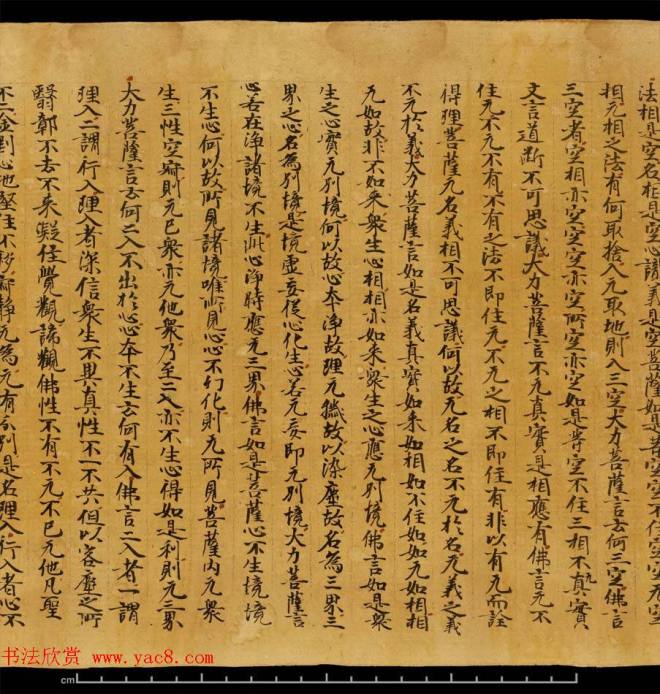 法相是空名相是空心識義是空菩薩如是等空空不住空空无空
相无相之法有何取捨入无取地則入三空大力菩薩言云何三空佛言
三空者空相亦空空空亦空所空亦空如是等空不住三相不无真實
文言道斷不可思議大力菩薩言不无真實是相應有佛言无不
住无不无不有不有之法不即住无不无之相不即住有非以有无而詮
得理菩薩无名義相不可思議何以故无名之名不无於名无義之義
不无於義大力菩薩言如是名義真實如來如相如不住如如无如相相
无如故非不如來衆生心相相亦如來衆生之心應无別境佛言如是衆
生之心實无別境何以故心本淨故理无穢故以染塵故名為三界三
界之心名為別境是境虛妄從心化生心若无妄即无別境大力菩薩言
心若在淨諸境不生此心淨時應无三界佛言如是菩薩心不生境境
不生心何以故所見諸境唯所見心心不幻化則无所見菩薩内无衆
生三性空寂則无己衆亦无他衆乃至二入亦不生心得如是利則无三界
大力菩薩言云何二入不出於心心本不生云何有入佛言二入者一謂
理入二謂行入理入者深信衆生不異真性不一不共但以客塵之所
翳鄣不去不來凝住覺觀諦觀佛性不有不无不已无他凡聖
不二金剛心地堅住不移寂静无為无有分別是名理入行入者心不
书法欣赏 www.yac8.com
cm